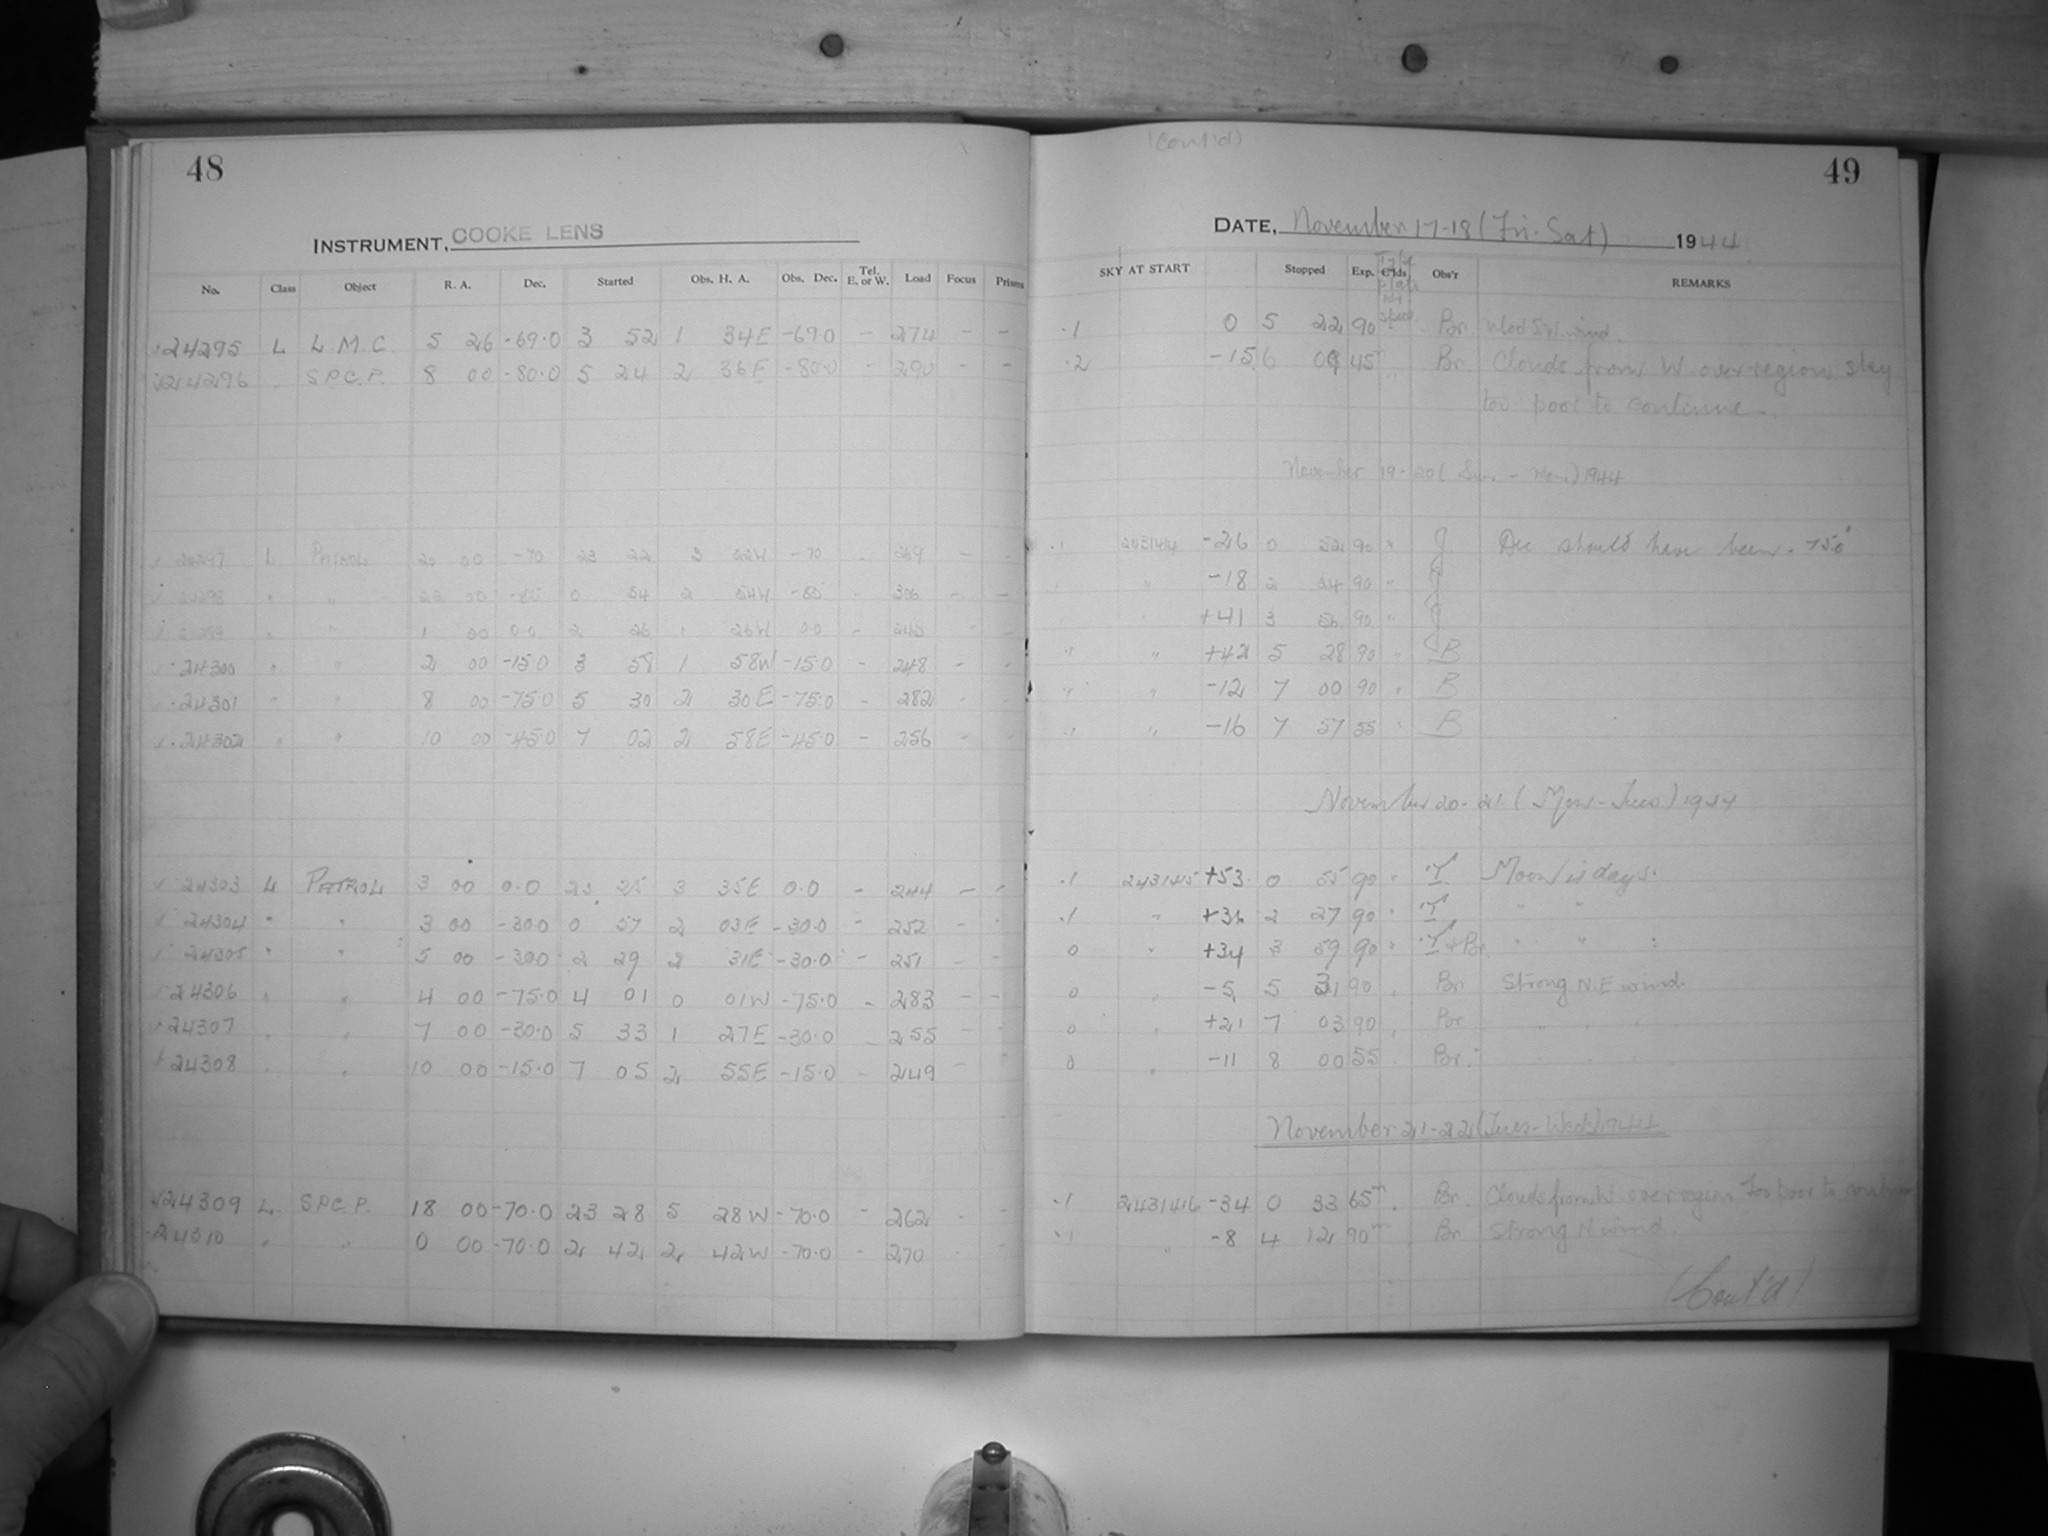 48
INSTRUMENT, COOKE LENS
No. Class Object R. A. Dec. Started Obs. H. A. Obs. Dec. Tel. E. or W. Load Focus Prisms
24295 L L.M.C. 5 26 -69.0 3 52 1 34E -69.0 - 274 - -
24296 " S.P.C.P. 8 00 -80.0 5 24 2 36E -80.0 - 290 - -
24297 L PATROL 20 00 -70 23 22 3 22W -70 - 269 - -
24298 " " 22 00 -85 0 54 2 54W -85 - 306 - -
24299 " " 1 00 0.0 2 26 1 26W 0.0 - 245 - -
24300 " " 2 00 -15.0 3 58 1 58W -15.0 - 248 - -
24301 " " 8 00 -75.0 5 30 2 30E -75.0 - 282 - -
24302 " " 10 00 -45.0 7 02 2 58E -45.0 - 256 - -
24303 L PATROL 3 00 0.0 23 25 3 35E 0.0 - 244 - -
24304 " " 3 00 -30.0 0 57 2 03E -30.0 - 252 - -
24305 " " 5 00 -30.0 2 29 2 31E -30.0 - 251 - -
24306 " " 4 00 -75.0 4 01 0 01W -75.0 - 283 - -
24307 " " 7 00 -30.0 5 33 1 27E -30.0 - 255 - -
24308 " " 10 00 -15.0 7 05 2 55E -15.0 - 249 - -
24309 L S.P.C.P. 18 00 -70.0 23 28 5 28W -70.0 - 262 - -
24310 " " 0 00 -70.0 2 42 2 42W -70.0 - 270 - -
(Cont'd)
49
DATE, November 17-18 (Fri-Sat) 1944
SKY AT START Stopped Exp. Clds Obs'r REMARKS
.1 0 5 22 90 Br Mod SW. wind.
.2 -15 6 09 45 " Br Clouds from W. over region, sky
too poor to continue.
November 19-20 (Sun - Mon) 1944
.1 2431414 -26 0 52 90 " J Dec should have been -75°
" " -18 2 24 90 " J
" " +41 3 56 90 " J
" " +42 5 28 90 " B
" " -12 7 00 90 " B
" " -16 7 57 55 " B
November 20-21 (Mon-Tues) 1944
.1 2431415 +53 0 55 90 " T Moon is days.
.1 " +36 2 27 90 " T " "
0 " +34 3 59 90 " T+Br " "
0 " -5 5 31 90 " Br Strong N.E wind
0 " +21 7 03 90 " Br " " "
0 " -11 8 00 55 " Br " " "
November 21-22 (Tues-Weds) 1944
.1 2431416 -34 0 33 65m " Br. Clouds from W over region Too poor to continue
.1 " -8 4 12 90m Br Strong N wind.
(Cont'd)